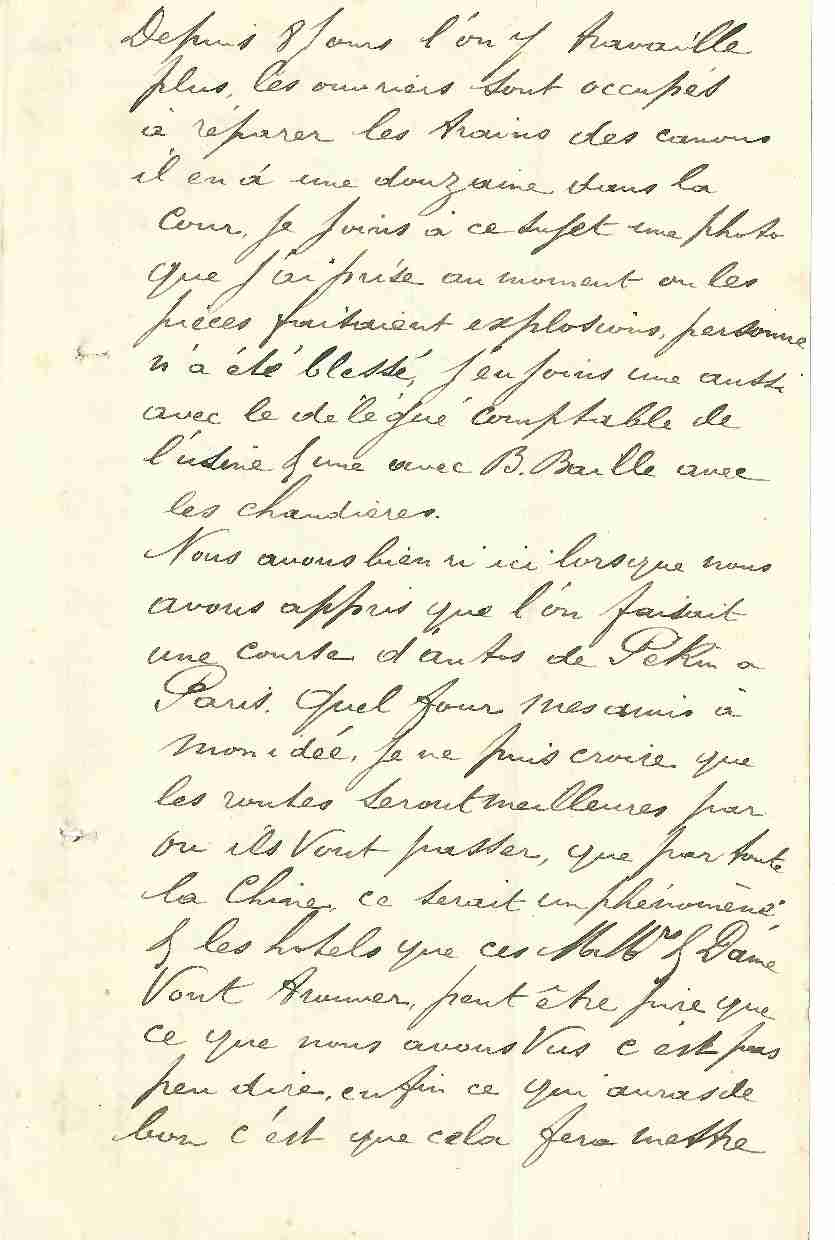 Depuis 8 Jours l'on y travaille
plus, les ouvriers sont occupés
à réparer les trains des canons
il en á une douzaine dans la
Cour, Je Joins à ce sujet une photo
que J'ai prise au moment ou les
pièces faisaient explosions, personne
n'a été blessé, J'en Joins une aussi
avec le délégué comptable de
l'usine & une avec B. Baille avec
les chaudières.
Nous avons bien ri ici lorsque nous
avons appris que l'on faisait
une course d'autos de Pekin a
Paris. Quel four mes amis à
mon idée, Je ne puis croire que
les routes seront meilleures par
ou ils Vont passer, que par toute
la Chine, ce serait un phénomène
& les hotels que ces MM^rs & Dame
Vont trouver, peut être pire que
ce que nous avons Vus c'est pas
peu dire, enfin ce qui auras de
bon c'est que cela fera mettre